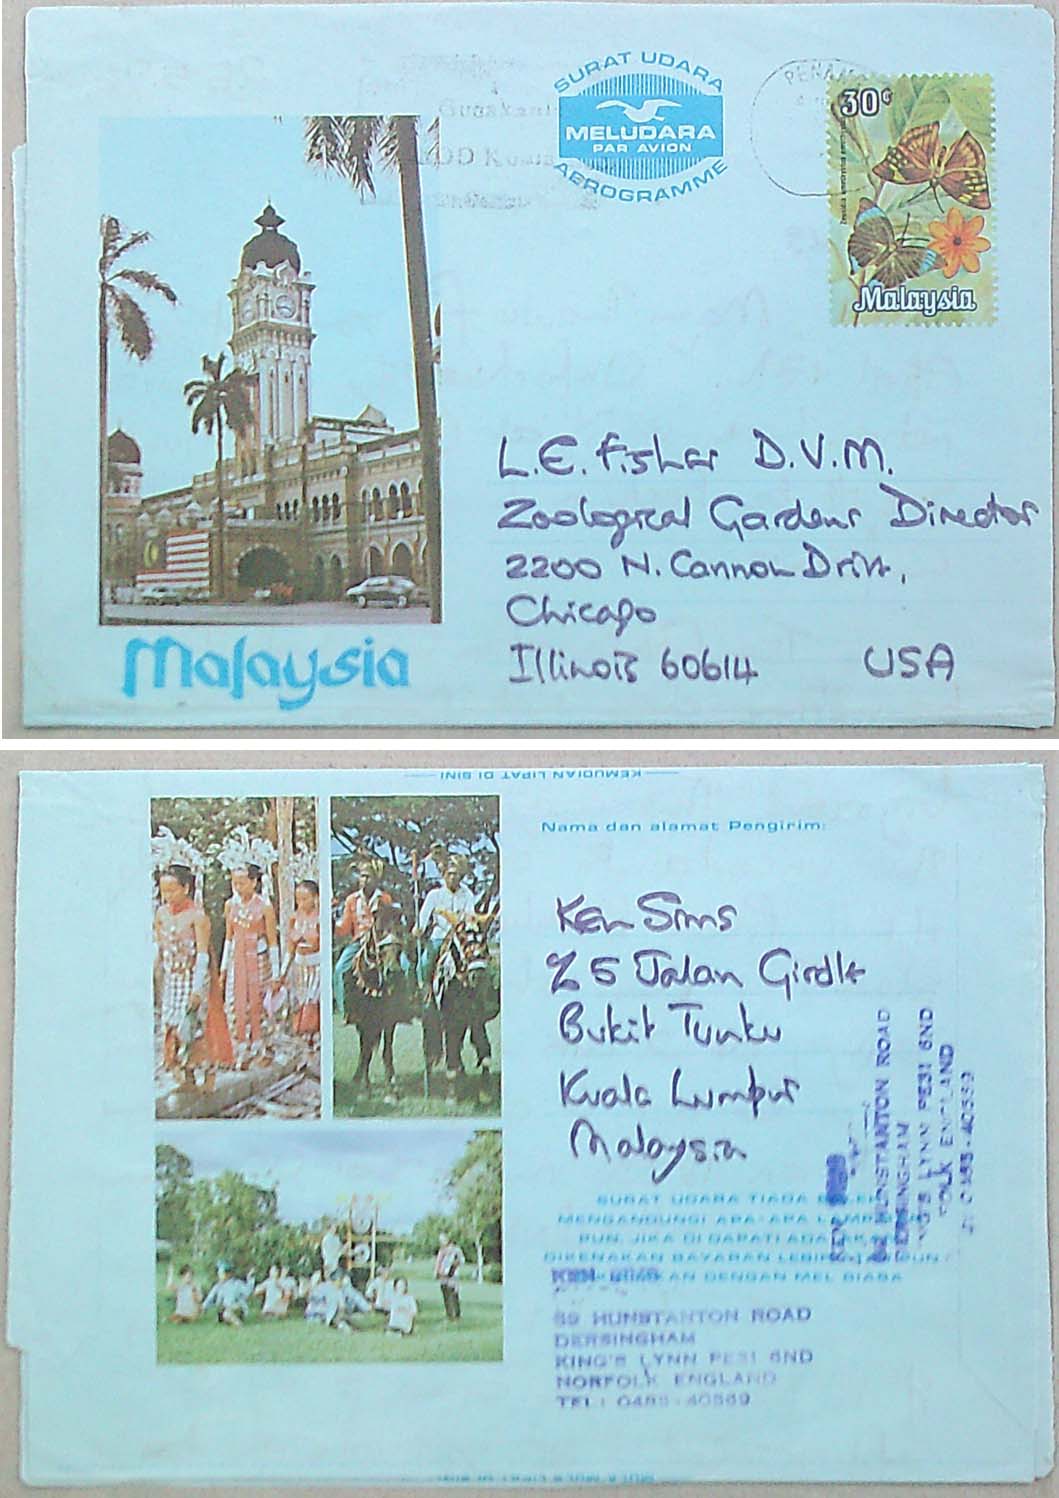 SURAT UDARA
MELUDARA
PAR AVION
AEROGRAMME
PENANG
30¢
Malaysia
L.E. Fisher D.V.M.
Zoological Gardens Director
2200 N. Cannon Drive,
Chicago
Illinois 60614 USA
Malaysia
KEMUDIAN LIPAT DI SINI
Nama dan alamat Pengirim:
Ken Sims
% 5 Jalan Girdle
Bukit Tunku
Kuala Lumpur
Malaysia
SURAT UDARA TIADA BOLEH
MENGANDUNGI APA-APA LAMPIRAN
PUN. JIKA DI DAPATI ADA, AKAN
DIKENAKAN BAYARAN LEBIH ATAUPUN
DENGAN MEL BIASA
KEN SIMS
89 HUNSTANTON ROAD
DERSINGHAM
KING'S LYNN PE31 6ND
NORFOLK ENGLAND
TEL: 0485-40569
KEN
HUNSTANTON ROAD
DERSINGHAM
LYNN PE31 6ND
FOLK ENGLAND
0485-40569